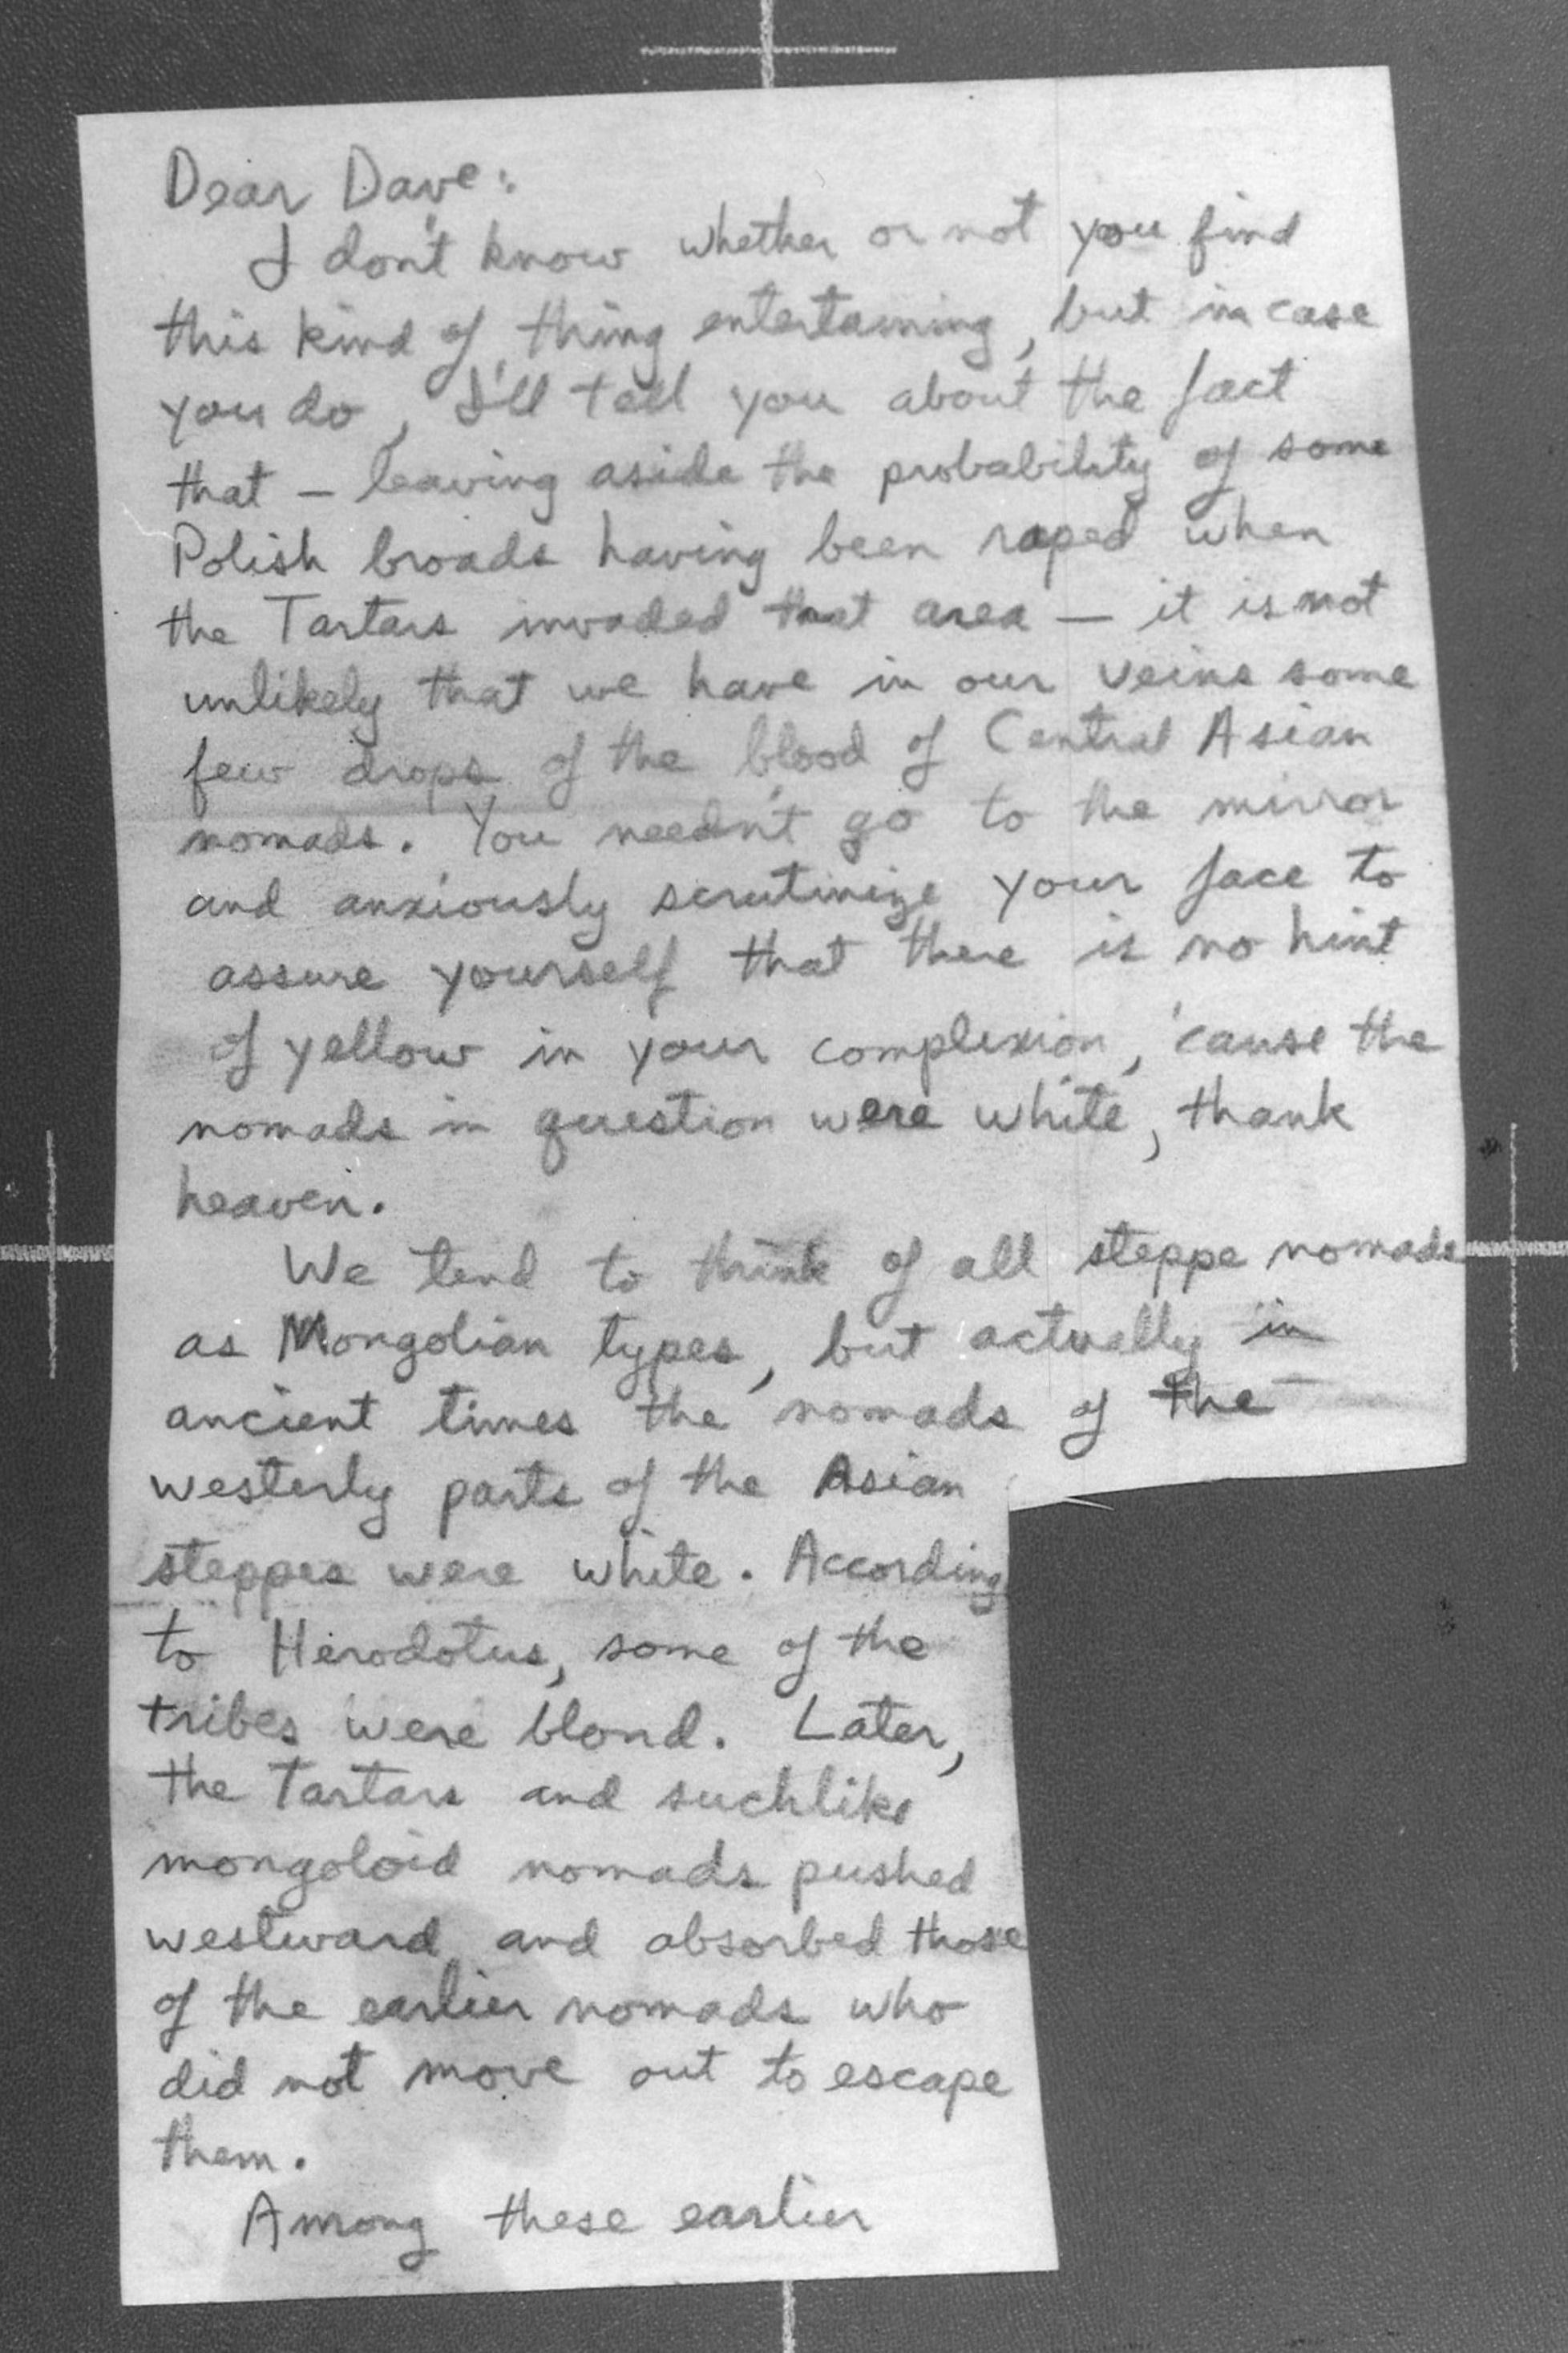 Dear Dave:
I don't know whether or not you find
this kind of thing entertaining, but in case
you do, I'll tell you about the fact
that — leaving aside the probability of some
Polish broads having been raped when
the Tartars invaded that area — it is not
unlikely that we have in our veins some
few drops of the blood of Central Asian
nomads. You needn't go to the mirror
and anxiously scrutinize your face to
assure yourself that there is no hint
of yellow in your complexion, 'cause the
nomads in question were white, thank
heaven.
We tend to think of all steppe nomads
as Mongolian types, but actually in
ancient times the nomads of the
westerly parts of the Asian
steppes were white. According
to Herodotus, some of the
tribes were blond. Later,
the Tartars and suchlike
mongoloid nomads pushed
westward and absorbed those
of the earlier nomads who
did not move out to escape
them.
Among these earlier